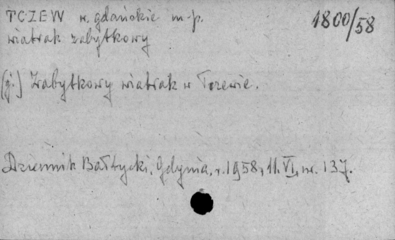 TCZEW w. gdańskie m-p. 1800/58
wiatrak zabytkowy
(j.) Zabytkowy wiatrak w Tczewie.
Dziennik Bałtycki, Gdynia, r. 1958, 11. VI, nr. 137.